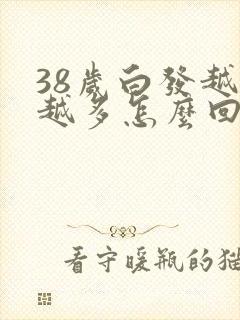 38歲白發越
越多怎麼回
看守暖瓶的猫